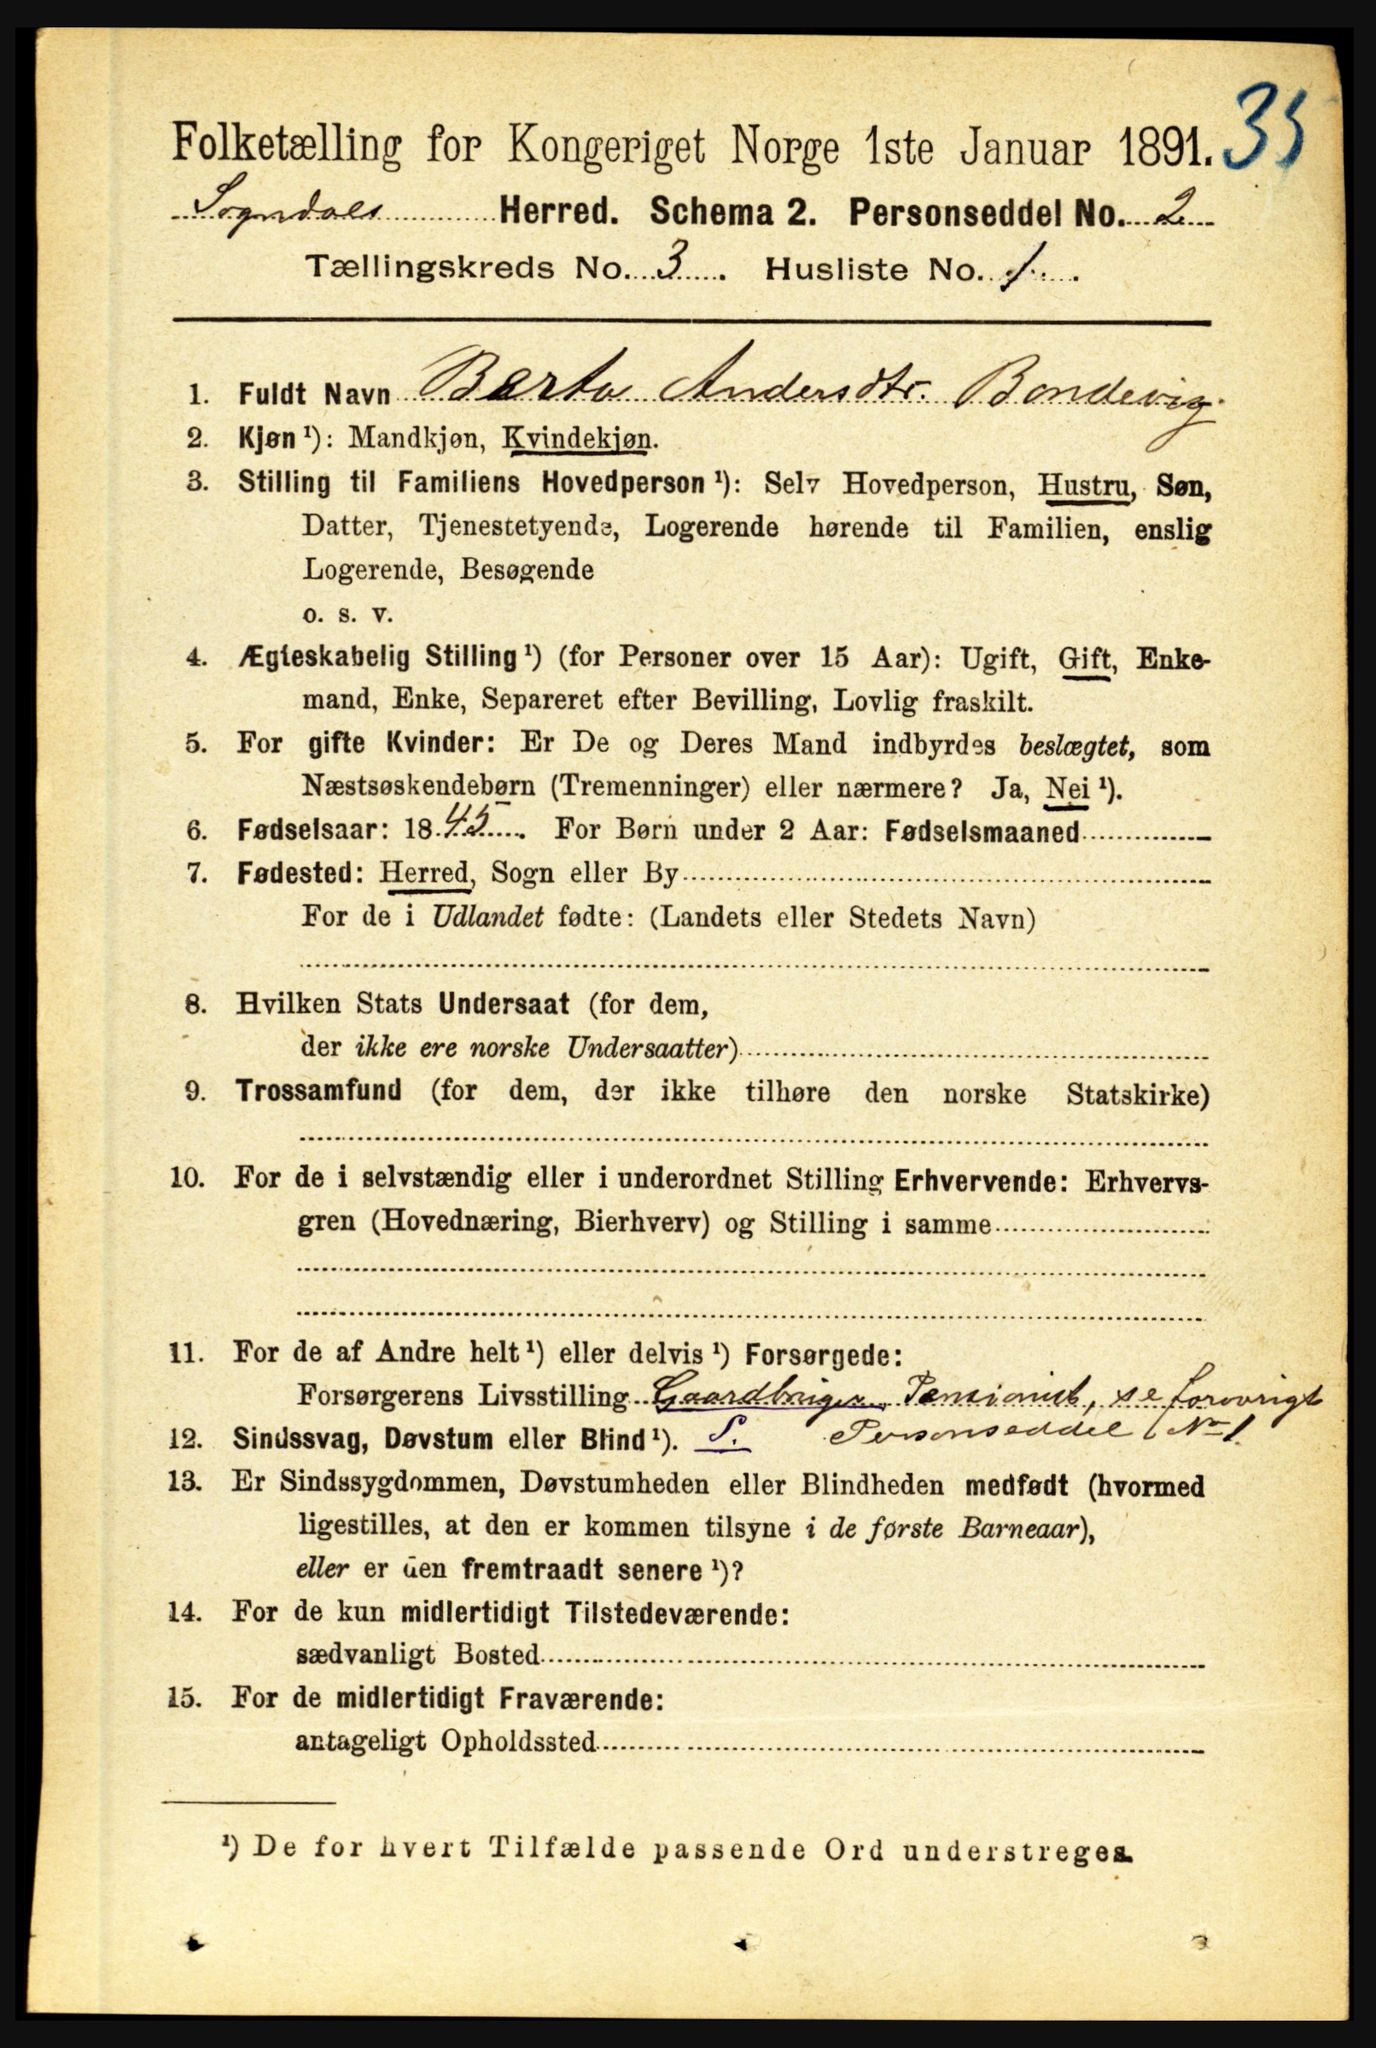 35
Folketælling for Kongeriget Norge 1ste Januar 1891.
Sogndals Herred. Schema 2. Personseddel No. 2
Tællingskreds No. 3. Husliste No. 1.
1. Fuldt Navn Berta Andersdtr. Bondevig.
2. Kjøn ¹): Mandkjøn, Kvindekjøn.
3. Stilling til Familiens Hovedperson ¹): Selv Hovedperson, Hustru, Søn,
Datter, Tjenestetyende, Logerende hørende til Familien, enslig
Logerende, Besøgende
o. s. v.
4. Ægteskabelig Stilling ¹) (for Personer over 15 Aar): Ugift, Gift, Enke-
mand, Enke, Separeret efter Bevilling, Lovlig fraskilt.
5. For gifte Kvinder: Er De og Deres Mand indbyrdes beslægtet, som
Næstsøskendebørn (Tremenninger) eller nærmere? Ja, Nei ¹).
6. Fødselsaar: 1845. For Børn under 2 Aar: Fødselsmaaned
7. Fødested: Herred, Sogn eller By
For de i Udlandet fødte: (Landets eller Stedets Navn)
8. Hvilken Stats Undersaat (for dem,
der ikke ere norske Undersaatter)
9. Trossamfund (for dem, der ikke tilhøre den norske Statskirke)
10. For de i selvstændig eller i underordnet Stilling Erhvervende: Erhvervs-
gren (Hovednæring, Bierhverv) og Stilling i samme
11. For de af Andre helt ¹) eller delvis ¹) Forsørgede:
Forsørgerens Livsstilling Gaardbruger, Pensionist, se forøvrigt
12. Sindssvag, Døvstum eller Blind ¹). S. Personseddel No 1.
13. Er Sindssygdommen, Døvstumheden eller Blindheden medfødt (hvormed
ligestilles, at den er kommen tilsyne i de første Barneaar),
eller er den fremtraadt senere ¹)?
14. For de kun midlertidigt Tilstedeværende:
sædvanligt Bosted
15. For de midlertidigt Fraværende:
antageligt Opholdssted
¹) De for hvert Tilfælde passende Ord understreges.